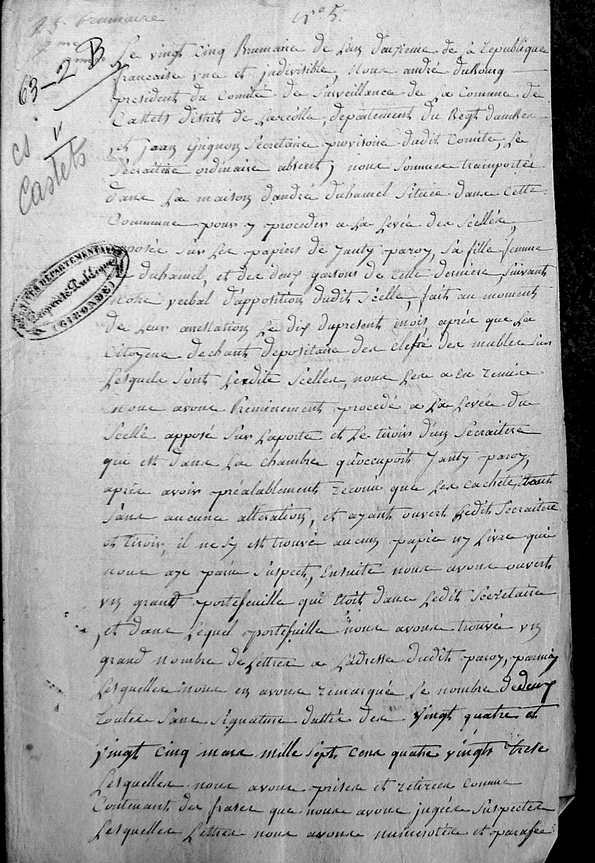 25 brumaire
N° 5.
2me
63-2 B
CS.
V
Castets
ARCHIVES DEPARTEMENTALES
Propriété Publique
(GIRONDE)
Le vingt cinq Brumaire de L'an deuxieme de la republique
francaise une et Indivisible, Nous andré dubourg
president du Comité de Surveillance de la Commune de
Castets district de Lareolle, departement du
et Jean Gignon Secretaire provisoire dudit Comité, Le
Secraitaire ordinaire absent, nous Sommes transportés
dans La maison d'andré duhamel Situëe dans Cette
Commune pour y proceder a La Levée des Scellés
apposés Sur Les papiers de Janty paroy, Sa fille femme
duhamel, et des deux garsons de Cette derniere, Suivant
notre verbal d'apposition dudit Scelle, fait au moment
de Leur arrestation, Le dix du present mois, après que La
Citoyene dechant depositaire des Clefs des mubles Sur
Lesquels Sont Lesdits Scelles, nous Les a eu remises
Nous avons Premierement procedé a La Levée du
Scellé apposé Sur Laporte et Le tirois d'un Secraitere
qui est dans La chambre qu'occupoit Janty paroy,
après avoir préalablement reconu que Les Cachets étant
Sans aucune alteration, et ayant ouvert Ledit Secraitere
et tirois, il ne Sy est trouvé aucun papié ny Livre qui
nous aye parû Suspect, Ensuite nous avons ouvert
un grand portefeuille qui étoit dans Ledit Secretaire
et dans Lequel portefeuille nous avons trouvé un
grand nombre de Lettres a L'adresse dudit paroy, parmy
Lesquelles nous en avons remarqué Le nombre de deux
toutes Sans Signature dattés des vingt quatre et
vingt cinq mars mille sept cens quatre vingt trese
Lesquelles nous avons prises et retirées comme
Contenant des frases que nous avons jugées Suspectes
Lesquelles Lettres nous avons numerotées et parafées